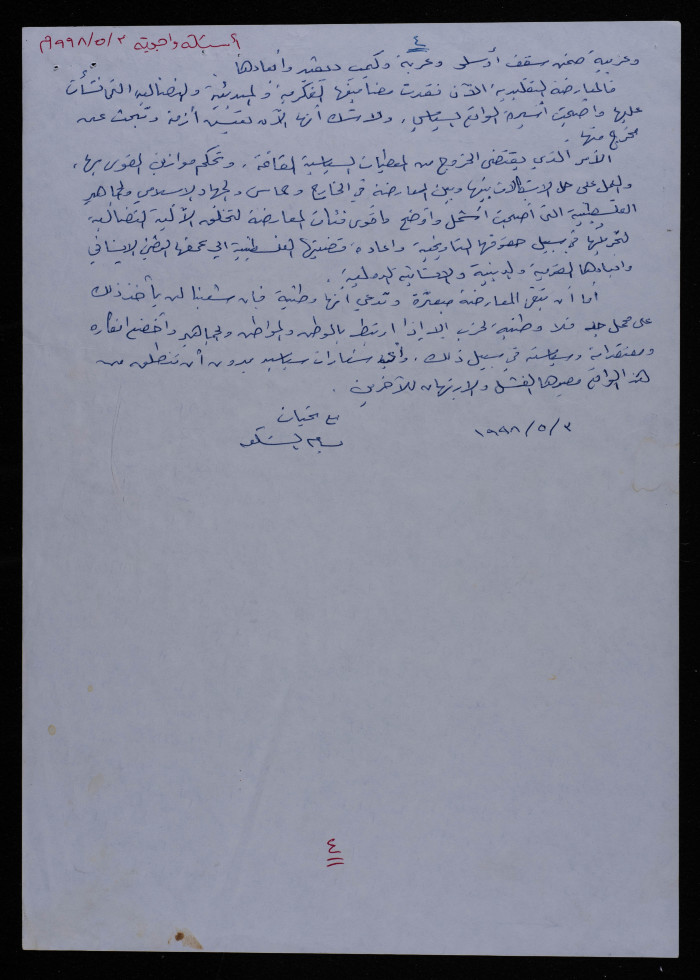 ٤
أسئلة وأجوبة ١٩٩٨/٥/٣م
وعربية ضمن سقف أوسلو وعربة وكمب ديفيد وأبعادها.
فالمعارضة التقليدية الآن فقدت مضامينها الفكرية والمبدئية والنضالية التي نشأت
عليها وأصبحت أسيرة الواقع السياسي، ولا شك أنها الآن تعيش أزمة وتبحث عن
مخرج منها.
الأمر الذي يقتضي الخروج من المعطيات السياسية القائمة، وتحكم موازين القوى بها،
والعمل على حل الاشكالات بينها وبين المعارضة في الخارج وحماس والجهاد الإسلامي والجماهير
الفلسطينية التي أصبحت أشمل وأوضح وأقوى فئات المعارضة لتخلق الآلية النضالية
لتحولها في سبيل حقوقها التاريخية واعادة قضيتها الفلسطينية الى عمقها الوطني الإنساني
وابعادها العربية والدينية والانسانية الدولية.
أما أن تبقى المعارضة مبعثرة وتدعي أنها وطنية فإن شعبنا لن يأخذ ذلك
على محمل جد فلا وطنية لحزب الا إذا ارتبط بالوطن والمواطن والجماهير وأخضع أفكاره
ومعتقداته وسياسته في سبيل ذلك، وأية شعارات سياسية بدون أن تنطلق من
هذا الواقع مصيرها الفشل والارتهان للآخرين.
١٩٩٨/٥/٣
مع تحيات
بسام الشكعة
٤